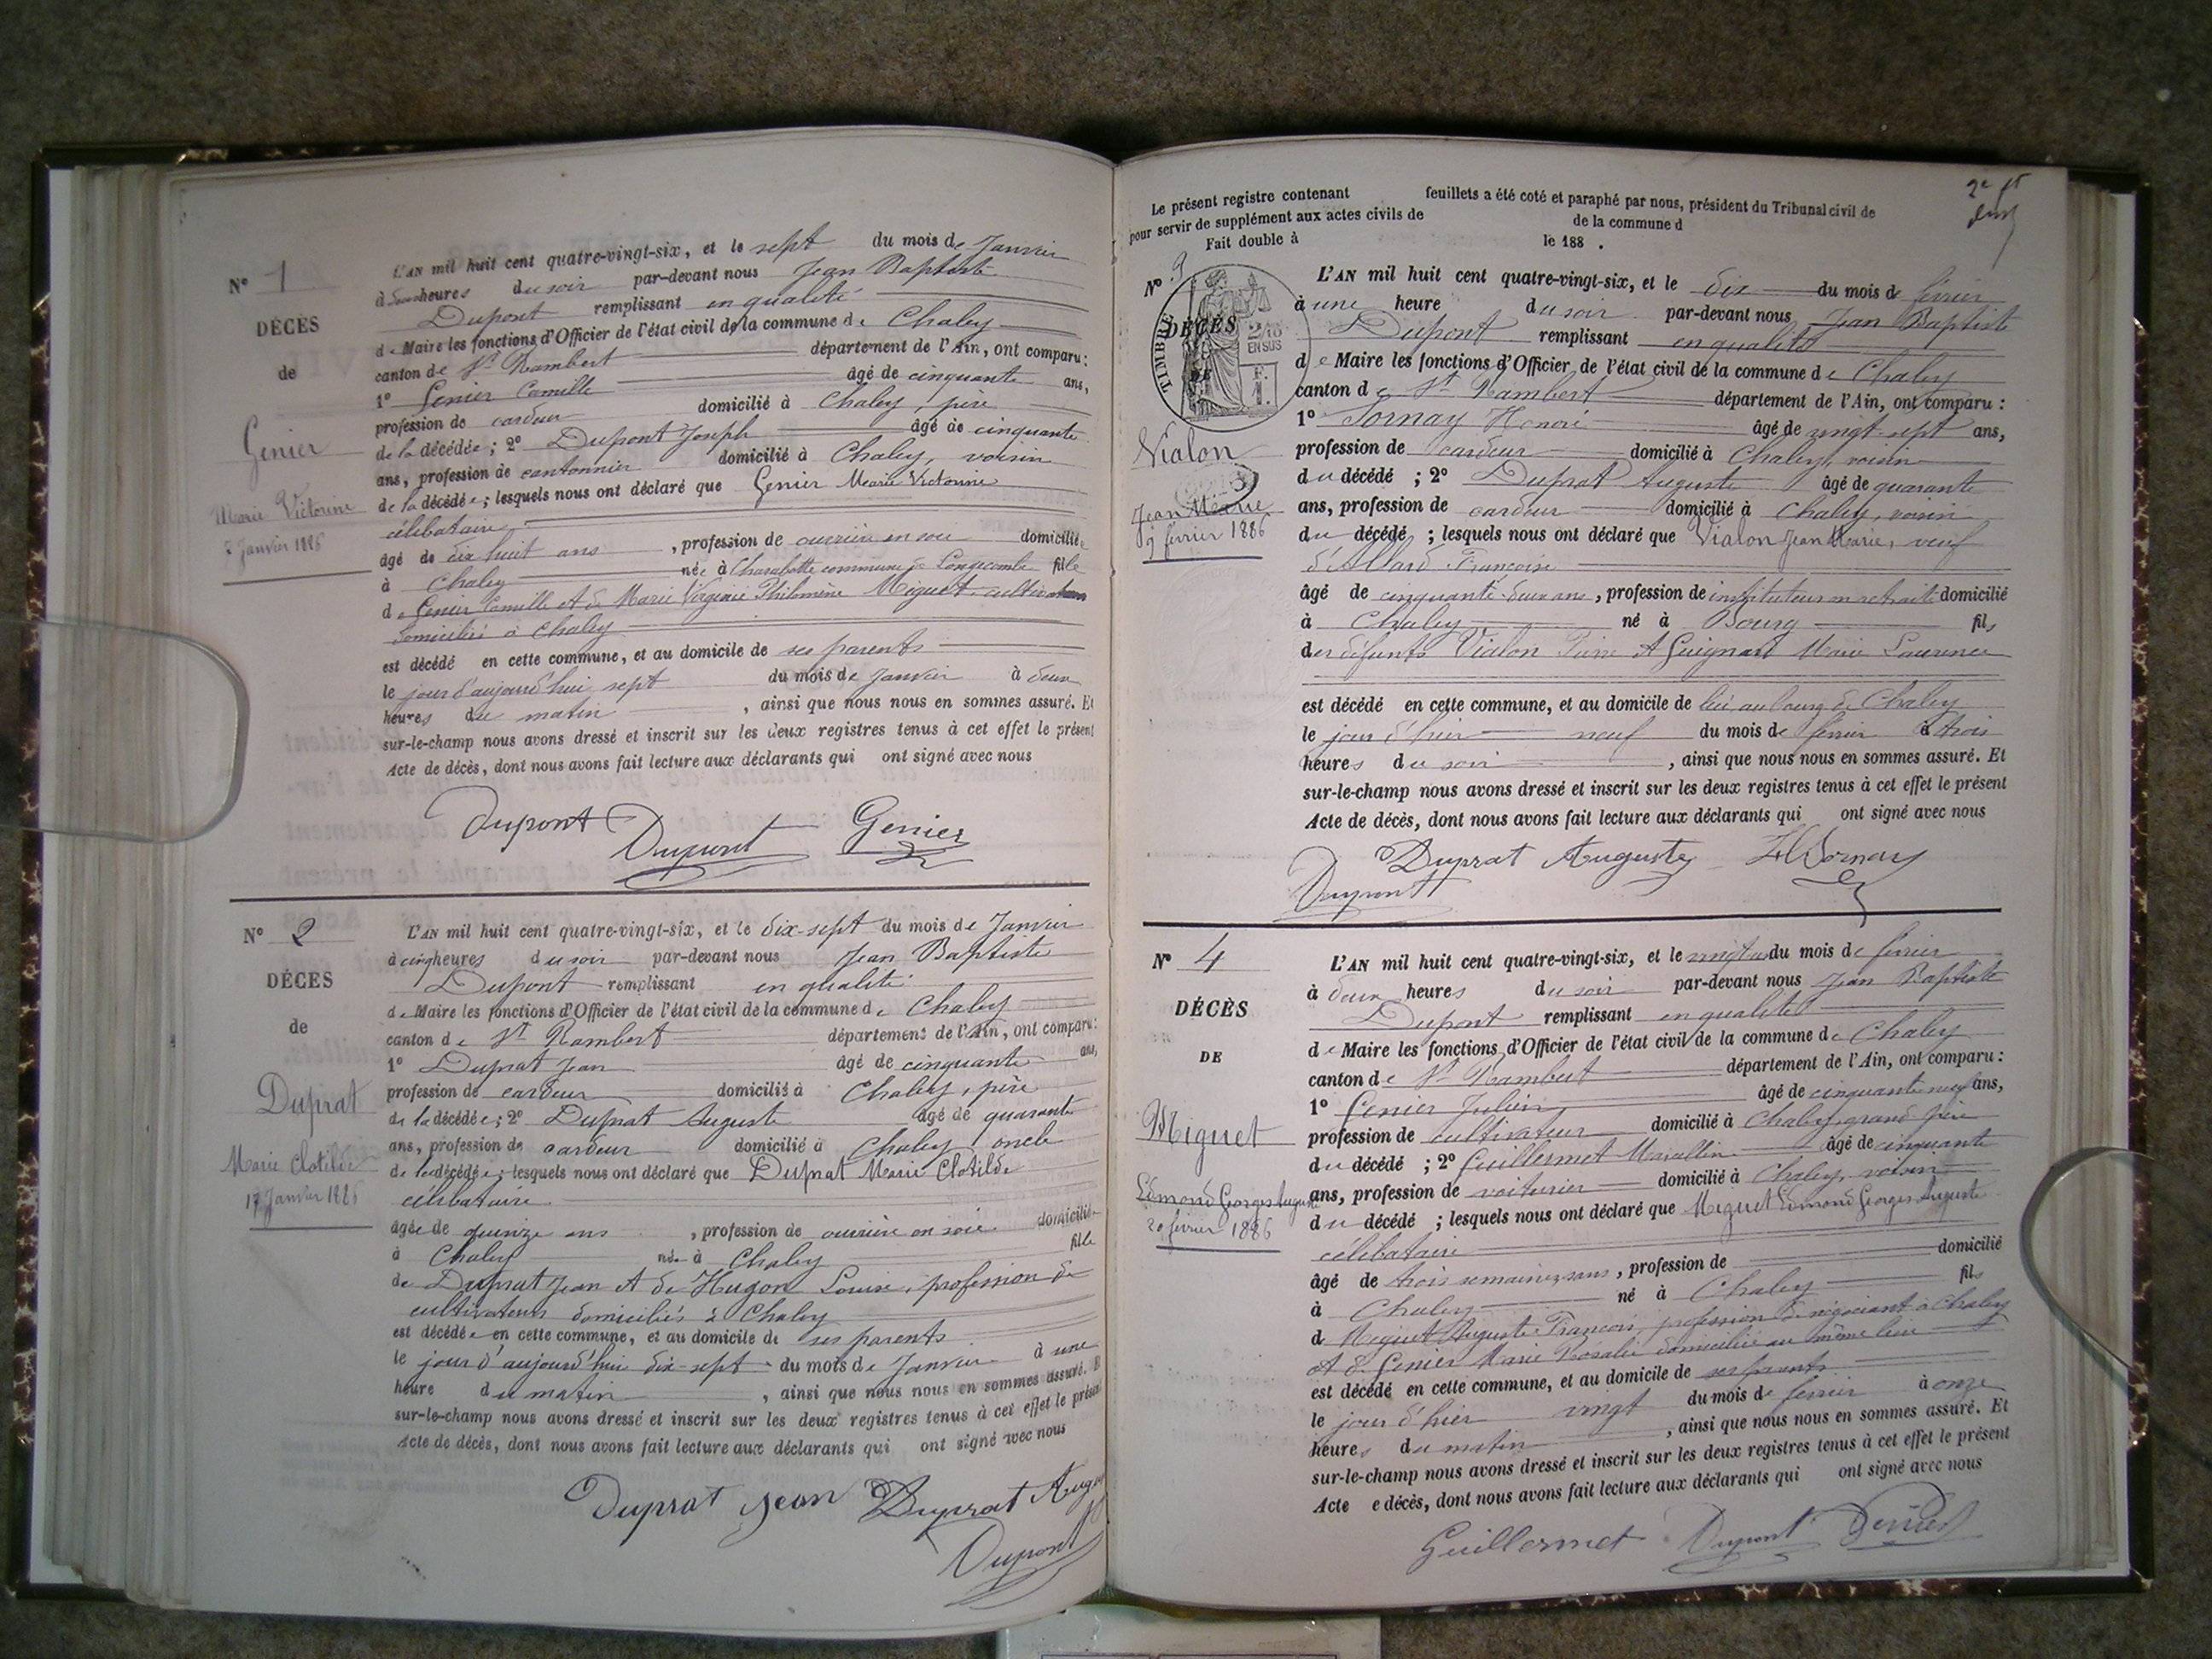 N° 1
DÉCÈS
de
Genier
Marie Victorine
7 Janvier 1886
L'AN mil huit cent quatre-vingt-six, et le sept du mois de Janvier
à deux heures du soir par-devant nous Jean Baptiste
Dupont remplissant en qualité
de Maire les fonctions d'Officier de l'état civil de la commune de Chaley
canton de St Rambert département de l'Ain, ont comparu :
1° Genier Camille âgé de cinquante ans,
profession de cardeur domicilié à Chaley, père
de la décédée ; 2° Dupont Joseph âgé de cinquante
ans, profession de cantonnier domicilié à Chaley, voisin
de la décédée ; lesquels nous ont déclaré que Genier Marie Victorine
célibataire
âgé de dix huit ans, profession de ouvrière en soie domiciliée
à Chaley née à Charabotte commune de Longecombe fille
de Genier Camille et de Marie Virginie Philomène Miguet, cultivateurs
domiciliés à Chaley
est décédé en cette commune, et au domicile de ses parents
le jour d'aujourd'hui sept du mois de Janvier à deux
heures du matin, ainsi que nous nous en sommes assuré. Et
sur-le-champ nous avons dressé et inscrit sur les deux registres tenus à cet effet le présent
Acte de décès, dont nous avons fait lecture aux déclarants qui ont signé avec nous
Dupont Dupont Genier
N° 2
DÉCÈS
de
Duprat
Marie Clotilde
17 Janvier 1886
L'AN mil huit cent quatre-vingt-six, et le dix-sept du mois de Janvier
à cinq heures du soir par-devant nous Jean Baptiste
Dupont remplissant en qualité
de Maire les fonctions d'Officier de l'état civil de la commune de Chaley
canton de St Rambert département de l'Ain, ont comparu :
1° Duprat Jean âgé de cinquante ans,
profession de cardeur domicilié à Chaley, père
de la décédée ; 2° Duprat Auguste âgé de quarante
ans, profession de cardeur domicilié à Chaley oncle
de la décédée ; lesquels nous ont déclaré que Duprat Marie Clotilde
célibataire
âgée de quinze ans, profession de ouvrière en soie domiciliée
à Chaley née à Chaley fille
de Duprat Jean et de Hugon Louise, profession de
cultivateurs domiciliés à Chaley
est décédée en cette commune, et au domicile de ses parents
le jour d'aujourd'hui dix-sept du mois de Janvier à une
heure du matin, ainsi que nous nous en sommes assuré. Et
sur-le-champ nous avons dressé et inscrit sur les deux registres tenus à cet effet le présent
Acte de décès, dont nous avons fait lecture aux déclarants qui ont signé avec nous
Duprat Jean Duprat Aug
Dupont
2e ft
Le présent registre contenant feuillets a été coté et paraphé par nous, président du Tribunal civil de
pour servir de supplément aux actes civils de de la commune d
Fait double à le 188 .
N° 3
TIMBRE
2/10 EN SUS
DÉCÈS
DE
Vialon
Jean Marie
9 février 1886
L'AN mil huit cent quatre-vingt-six, et le dix du mois de février
à une heure du soir par-devant nous Jean Baptiste
Dupont remplissant en qualité
de Maire les fonctions d'Officier de l'état civil de la commune de Chaley
canton de St Rambert département de l'Ain, ont comparu :
1° Tornay Honoré âgé de vingt-sept ans,
profession de cardeur domicilié à Chaley, voisin
du décédé ; 2° Duprat Auguste âgé de quarante
ans, profession de cardeur domicilié à Chaley, voisin
du décédé ; lesquels nous ont déclaré que Vialon Jean Marie, veuf
d'Allard Françoise
âgé de cinquante-deux ans, profession de instituteur en retraite domicilié
à Chaley né à Bourg fils
des défunts Vialon Pierre et Guignard Marie Laurence
est décédé en cette commune, et au domicile de lui au bourg de Chaley
le jour d'hier neuf du mois de février à trois
heures du soir, ainsi que nous nous en sommes assuré. Et
sur-le-champ nous avons dressé et inscrit sur les deux registres tenus à cet effet le présent
Acte de décès, dont nous avons fait lecture aux déclarants qui ont signé avec nous
Duprat Auguste H Tornay
Dupont
N° 4
DÉCÈS
DE
Miguet
Edmond Georges Auguste
20 février 1886
L'AN mil huit cent quatre-vingt-six, et le vingt un du mois de février
à deux heures du soir par-devant nous Jean Baptiste
Dupont remplissant en qualité
de Maire les fonctions d'Officier de l'état civil de la commune de Chaley
canton de St Rambert département de l'Ain, ont comparu :
1° Genier Julien âgé de cinquante neuf ans,
profession de cultivateur domicilié à Chaley, grand père
du décédé ; 2° Guillermet Marcellin âgé de cinquante
ans, profession de voiturier domicilié à Chaley, voisin
du décédé ; lesquels nous ont déclaré que Miguet Edmond Georges Auguste
célibataire
âgé de trois semaines ans, profession de domicilié
à Chaley né à Chaley fils
d Miguet Auguste François, profession de négociant à Chaley
et de Genier Marie Rosalie domiciliée au même lieu
est décédé en cette commune, et au domicile de ses parents
le jour d'hier vingt du mois de février à onze
heures du matin, ainsi que nous nous en sommes assuré. Et
sur-le-champ nous avons dressé et inscrit sur les deux registres tenus à cet effet le présent
Acte e décès, dont nous avons fait lecture aux déclarants qui ont signé avec nous
Guillermet Dupont Genier